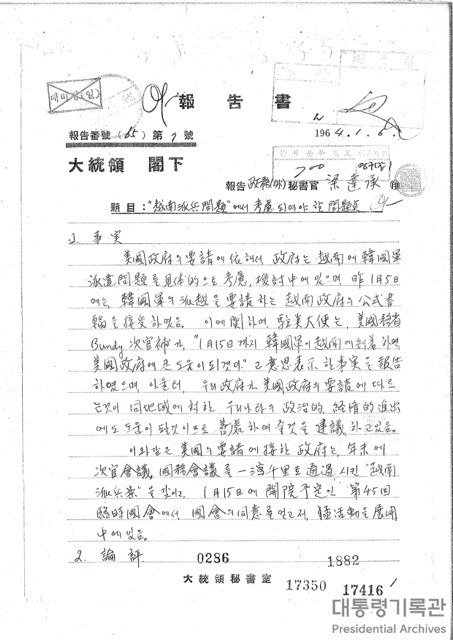 대비정(인)
報告書
報告番號(65)第7號
1964.1.6.
大統領 閣下
報告 政務(外)秘書官 梁達承 印
題目: "越南派兵問題"에서 考慮되어야 할 問題点
1. 事実
美國政府의 要請에 依해서 政府는 越南에 韓國軍
派遣問題를 具体的으로 考慮, 検討中에 있으며 昨 1月5日
에는, 韓國軍의 派越을 要請하는 越南政府의 公式書
翰을 接受하였음. 이에 関하여, 駐美大使는, 美國務省
Bundy 次官補가, "1月15日까지 韓國軍이 越南에 到着하면
美國政府에 큰 도움이 되겠다"고 意思表示한 事実을 報告
하였으며 아울러, 우리 政府가 美國政府의 要請에 따르
는것이 同地域에 対한 우리나라의 政治的, 経済的 進出
에도 도움이 될것이므로 善處하여 줄것을 建議하고있음.
이와같은 美國의 要請에 接한 政府는, 年末에
次官會議, 國務會議를 一瀉千里로 通過시킨 "越南
派兵案"을 갖이고, 1月15日에 開院予定인 第45回
臨時國會에서 國會의 同意를 얻고저 活動을 展開
中에 있음.
2. 論評
0286
1882
大統領秘書室
17350
17416
대통령기록관
Presidential Archives